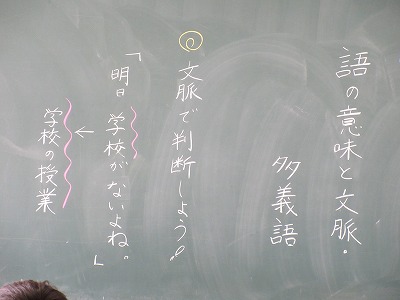 語の意味と文脈・
多義語
◎文脈で判断しよう!!
「明日学校がないよね。」
↑
学校の授業